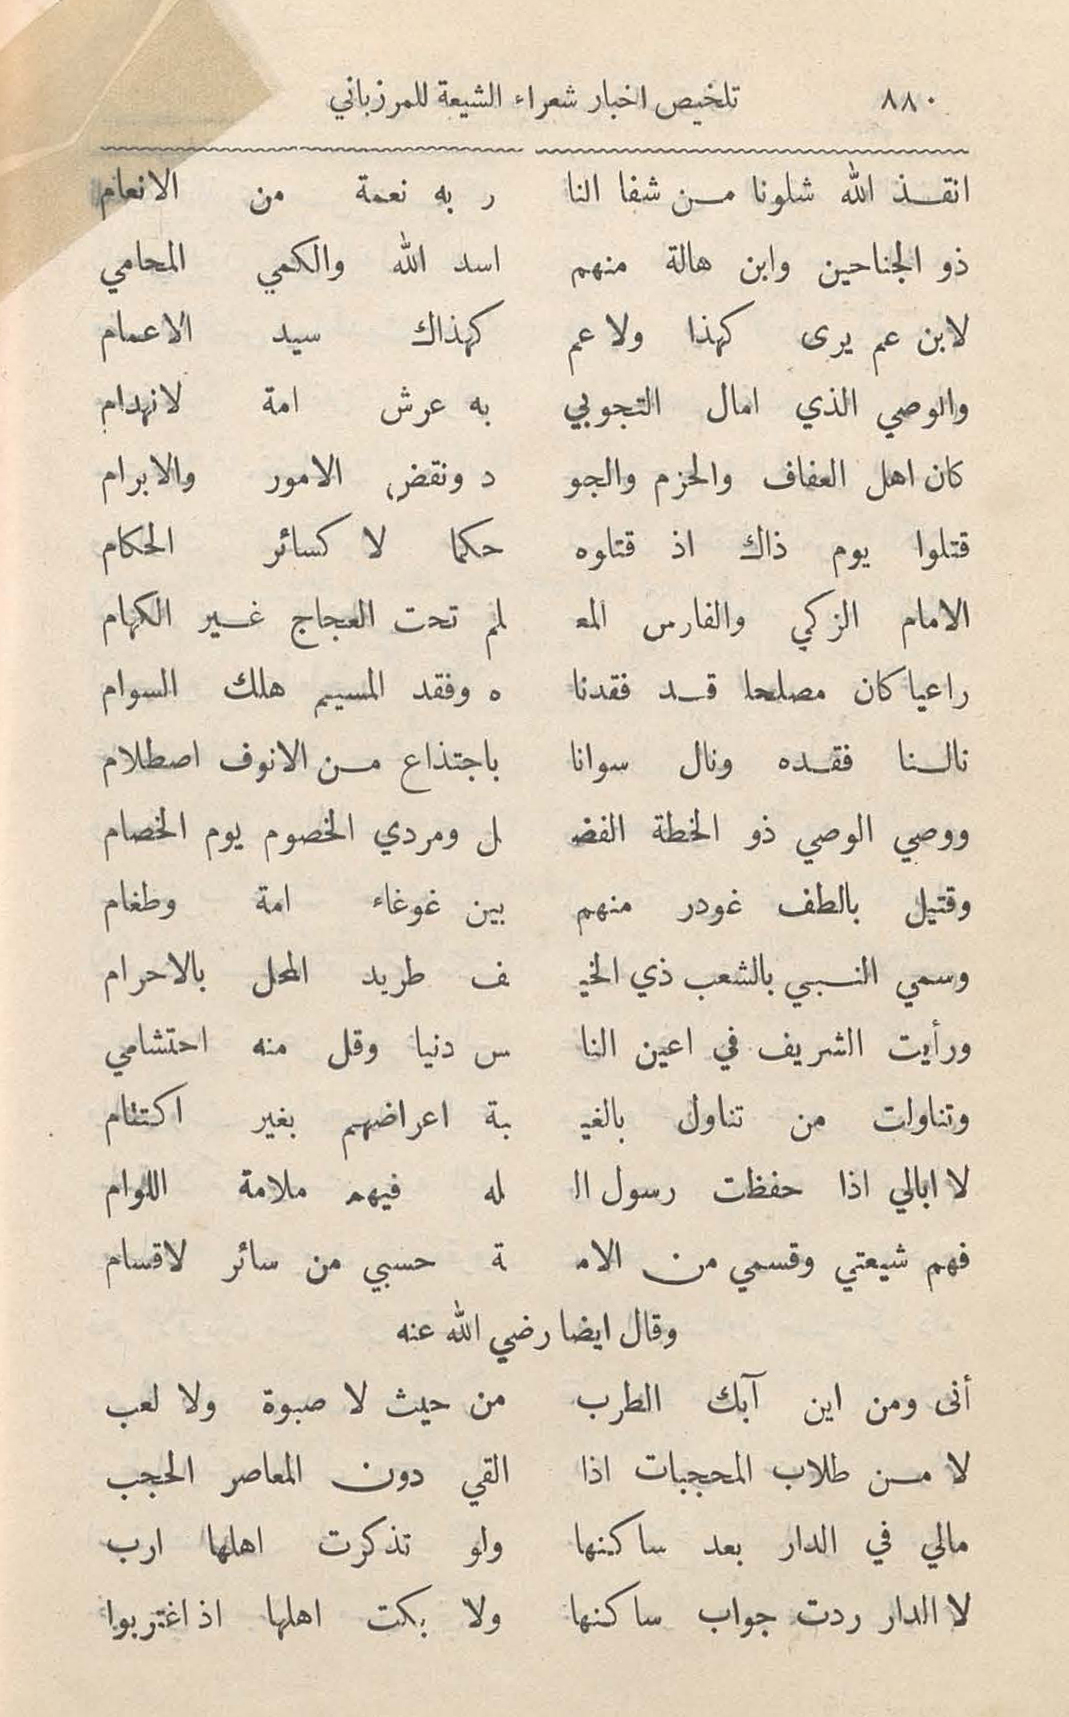 ٨٨٠ تلخيص اخبار شعراء الشيعة للمرزباني
انقـذ الله شلونا مـن شفا النا ر به نعمة من الانعام
ذو الجناحين وابن هالة منهم اسد الله والكمي المحامي
لابن عم يرى كهذا ولا عم كهذاك سيد الاعمام
والوصي الذي امال التجوبي به عرش امة لانهدام
كان اهل العفاف والحزم والجو د ونقض الامور والابرام
قتلوا يوم ذاك اذ قتلوه حكما لا كسائر الحكام
الامام الزكي والفارس المع لم تحت العجاج غـير الكهام
راعيا كان مصلحا قـد فقدنا ه وفقد المسيم هلك السوام
نالـنا فقـده ونال سوانا باجتذاع مـن الانوف اصطلام
ووصي الوصي ذو الخطة الفضـ ل ومردي الخصوم يوم الخصام
وقتيل بالطف غودر منهم بين غوغاء امة وطغام
وسمي النـبي بالشعب ذي الخيـ ف طريد المحل بالاحرام
ورأيت الشريف في اعين النا س دنيا وقل منه احتشامي
وتناولت من تناول بالغيـ بة اعراضهم بغير اكتتام
لا ابالي اذا حفظت رسول ال له فيهم ملامة اللوام
فهم شيعتي وقسمي من الامـ ة حسبي من سائر لاقسام
وقال ايضا رضي الله عنه
أنى ومن اين آبك الطرب من حيث لا صبوة ولا لعب
لا مـن طلاب المحجبات اذا القي دون المعاصر الحجب
مالي في الدار بعد ساكنها ولو تذكرت اهلها ارب
لا الدار ردت جواب ساكنها ولا بكت اهلها اذ اغتربوا